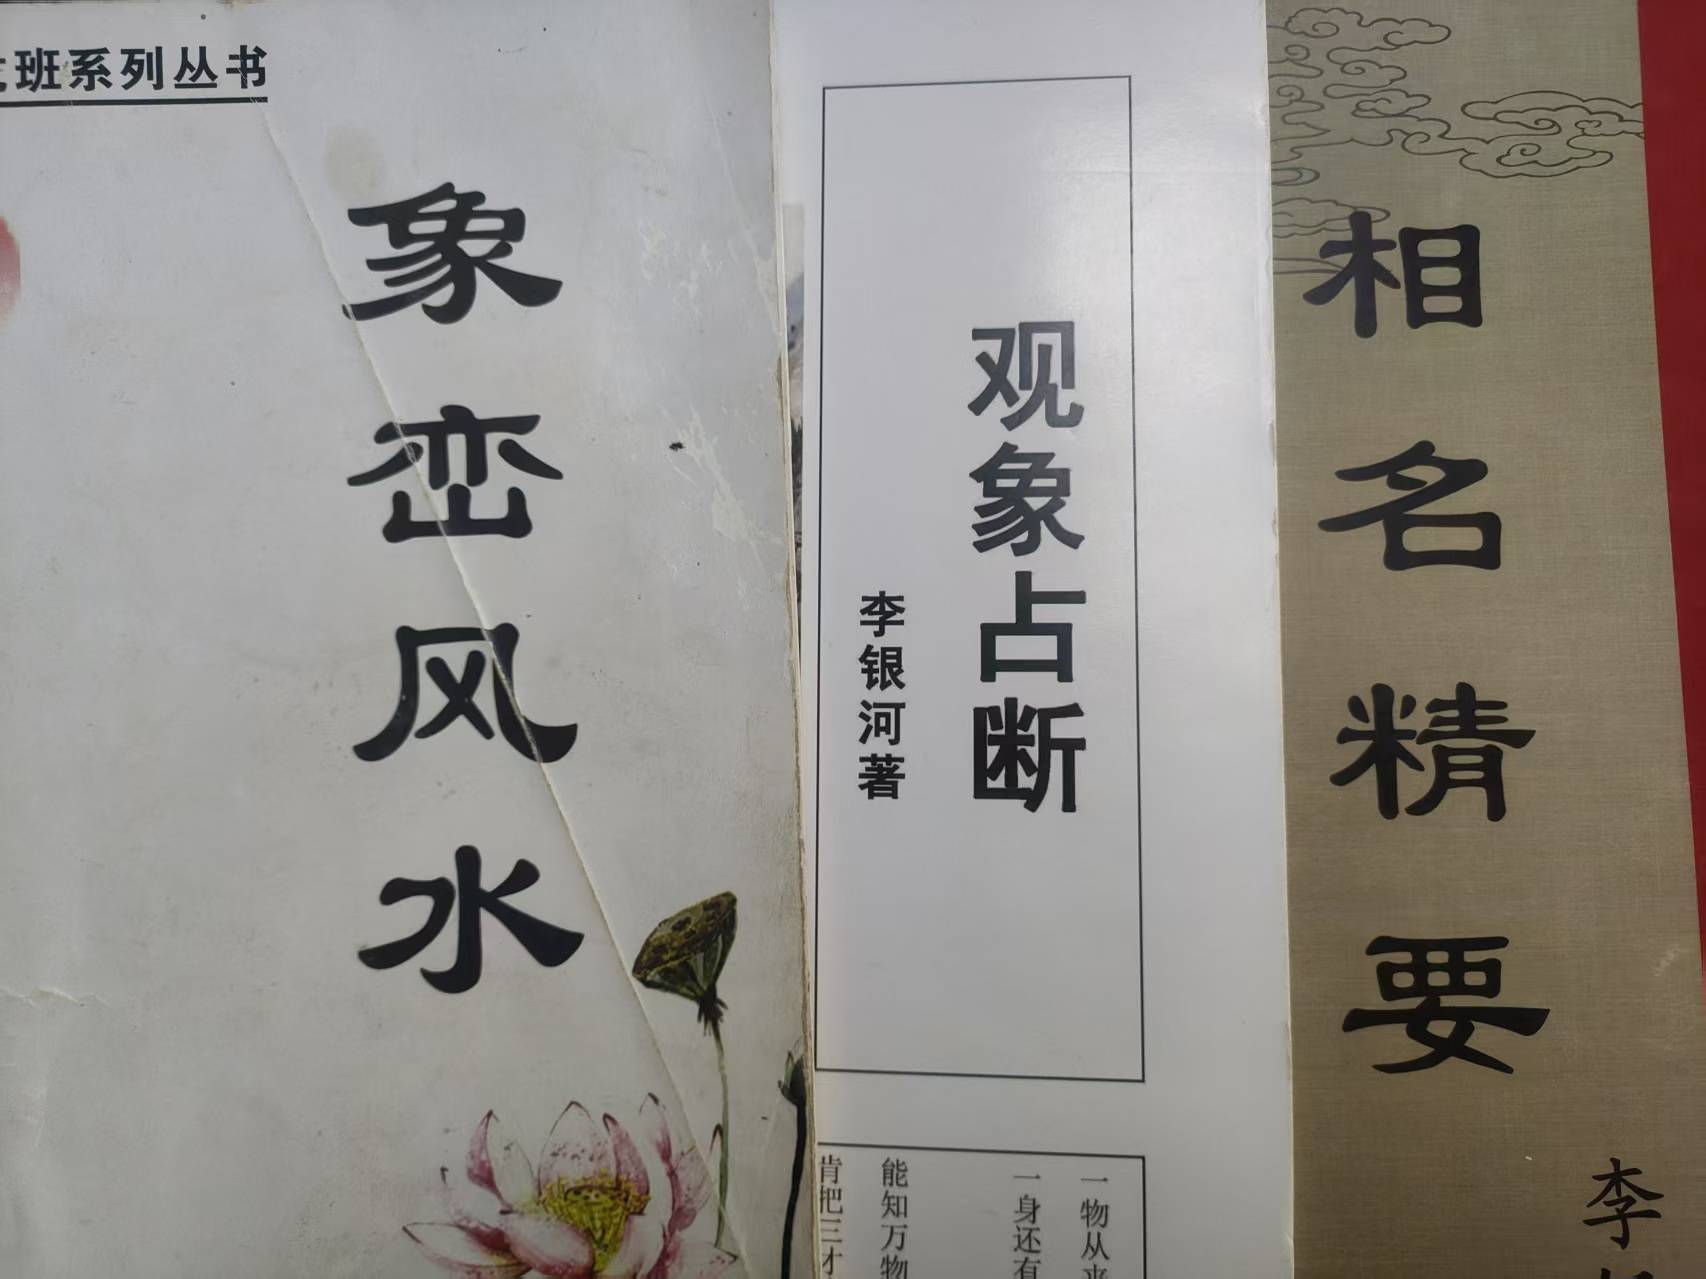 班系列丛书
象峦风水
观象占断
李银河著
一物从来
一身还有
能知万物
肯把三才
相名精要
李